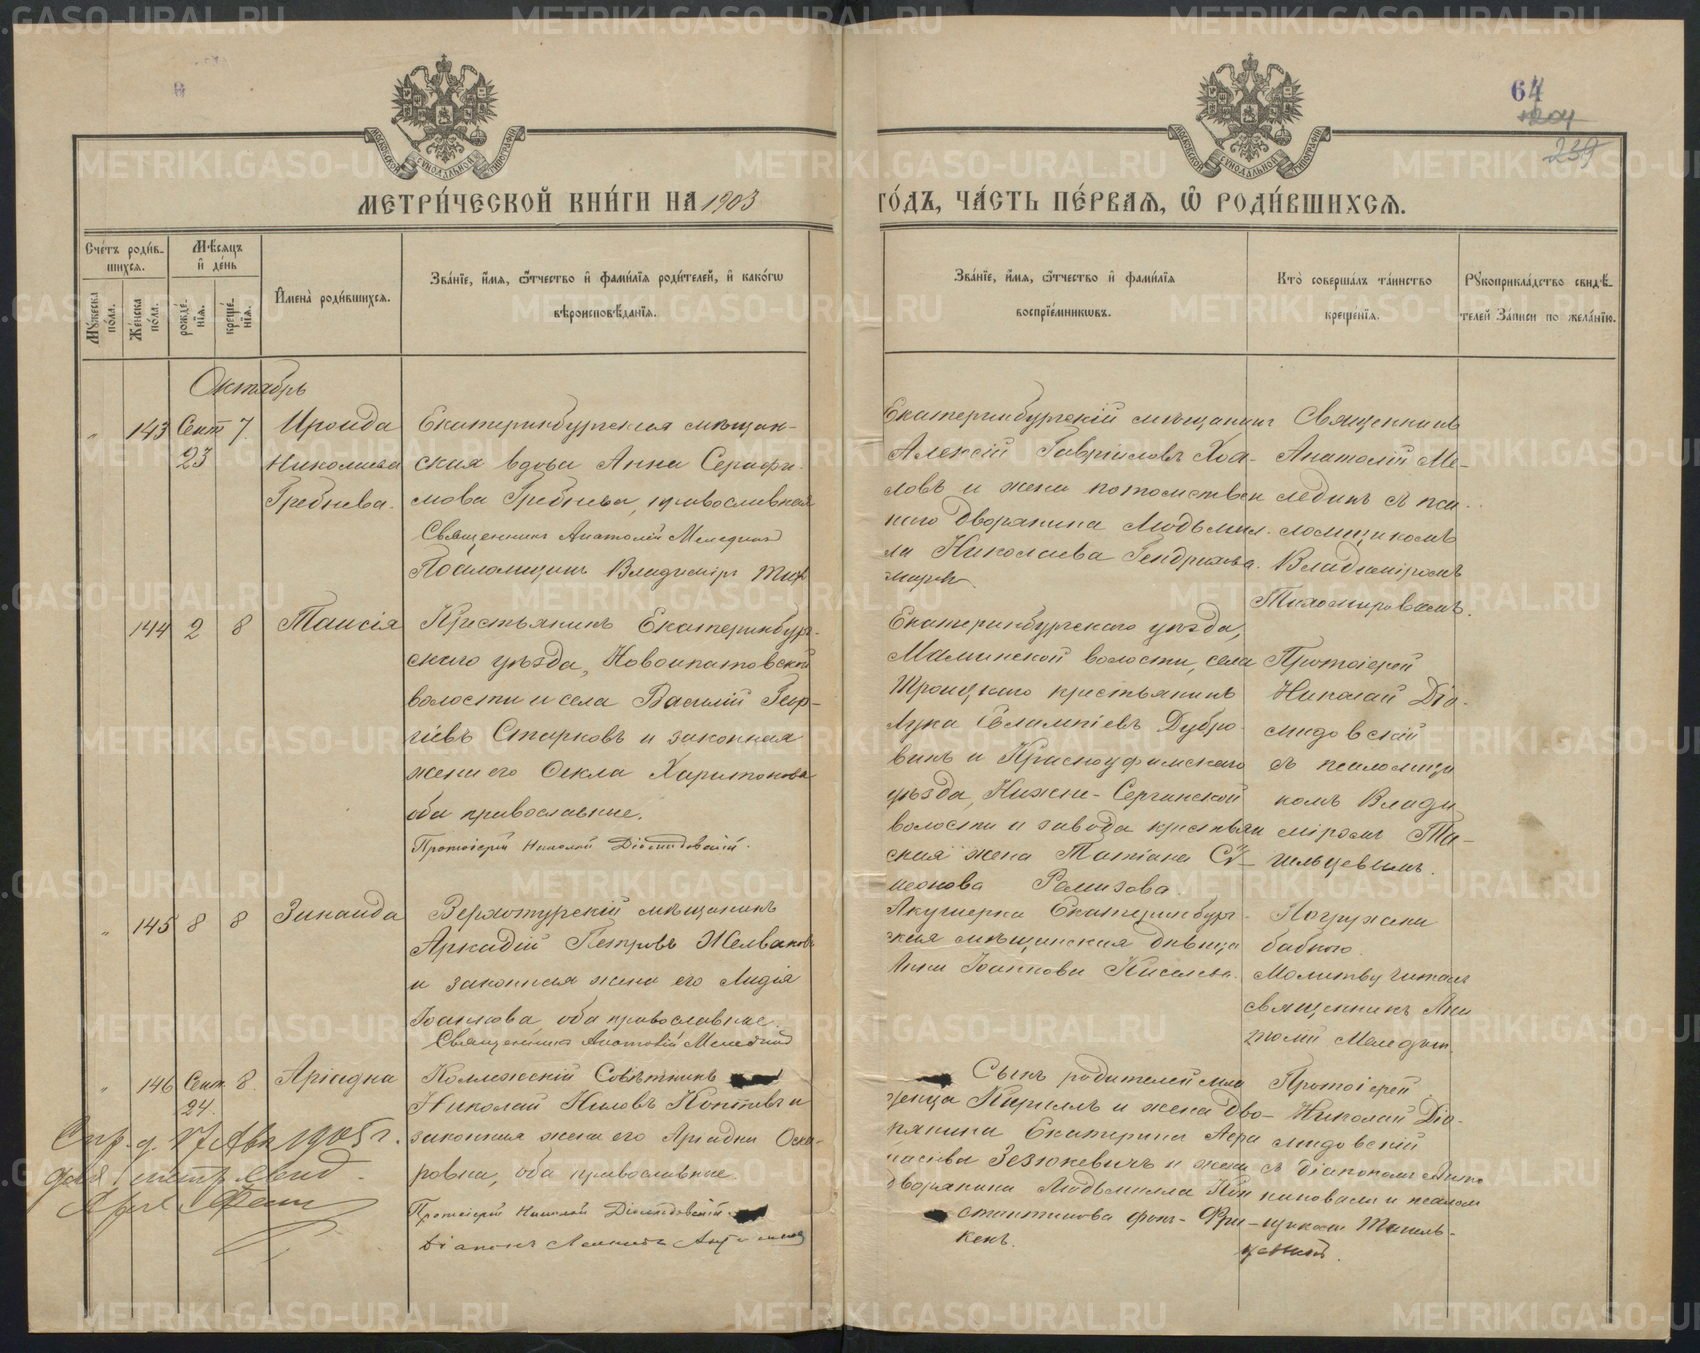 64
204
259
МОСКОВСКОЙ СѴНОДАЛЬНОЙ ТИПОГРАФІИ
МОСКОВСКОЙ СѴНОДАЛЬНОЙ ТИПОГРАФІИ
МЕТРИ́ЧЕСКОЙ КНИ́ГИ НА 1903 ГО́ДЪ, ЧА́СТЬ ПЕ́РВАѦ, Ѡ҆ РОДИ́ВШИХСѦ.
Счетъ роди́в-
шихся.
Мѣ́сяцъ
и҆ де́нь
Мꙋжеска
по́ла.
Же́нска
по́ла.
рожде́-
нїя.
креще́-
нїя.
И҆мена̀ роди́вшихся.
Зва́нїе, и҆́мя, ѻ҆́тчество и҆ фами́лїя роди́телей, и҆ како́гѡ
вѣроисповѣ́данїя.
Зва́нїе, и҆́мя, ѻ҆́тчество и҆ фами́лїя
воспрїе́мникѡвъ.
Кто̀ соверша́лъ та́инство
креще́нїя.
Рꙋкоприкла́дство свидѣ́-
телей за́писи по жела́нїю.
Октябрь
" 143 Сент 23 7.
Ироида
Николаева
Гребнева.
Екатеринбургская мѣщан-
ская вдова Анна Серафи-
мова Гребнева, православная
Священникъ Анатолій Меледин
Псаломщикъ Владиміръ Тих
Екатеринбургскій мѣщанинъ
Алексій Гавріиловъ Хох-
ловъ и жена потомствен
наго дворянина Людьмил-
ла Николаева Гендрихова.
Священникъ
Анатолій Ме-
лединъ съ пса-
ломщикомъ
Владиміромъ
Тихомировымъ.
144 2 8
Таисія
Крестьянинъ Екатеринбург-
скаго уѣзда, Новоипатовской
волости и села Василій Геор-
гіевъ Старковъ и законная
жена его Ѳекла Харитонова
оба православные.
Протоіерей Николай Діомидовскій.
Екатеринбургскаго уѣзда,
Маминской волости, села
Троицкаго крестьянинъ
Лука Евлампіевъ Дубро-
винъ и Красноуфимскаго
уѣзда, Нижне-Сергинской
волости и завода крестьян
ская жена Татіана Си-
меонова Ремизова.
Протоіерей
Николай Діо-
мидовскій
съ псаломщи
комъ Влади
міромъ Та-
гильцевымъ.
" 145 8 8
Зинаида
Верхотурскій мѣщанинъ
Аркадій Петровъ Желваковъ
и законная жена его Лидія
Іоаннова, оба православные.
Священникъ Анатолій Меледин
Акушерка Екатеринбург-
ская мѣщанская дѣвица
Анна Іоаннова Киселева.
Погружали
бабкою.
Молитву читалъ
священникъ Ана
толій Меледин.
" 146 Сент. 24. 8.
Аріадна
Коллежскій Совѣтникъ
Николай Ниловъ и
законная жена его Аріадна Оска-
ровна, оба православные.
Протоіерей Николай Діомидовскій.
Діаконъ
Сынъ родителей мла
денца Кириллъ и жена дво-
рянина Екатерина Аѳа
насіева Зезюкевичъ и жена
дворянина Людьмилла Кон
стантинова фонъ-Фри-
кенъ.
Протоіерей
Николай Діо-
мидовскій
съ діакономъ
и псалом
щикомъ Тагиль-
цевымъ.
17 Авг 1905 г.